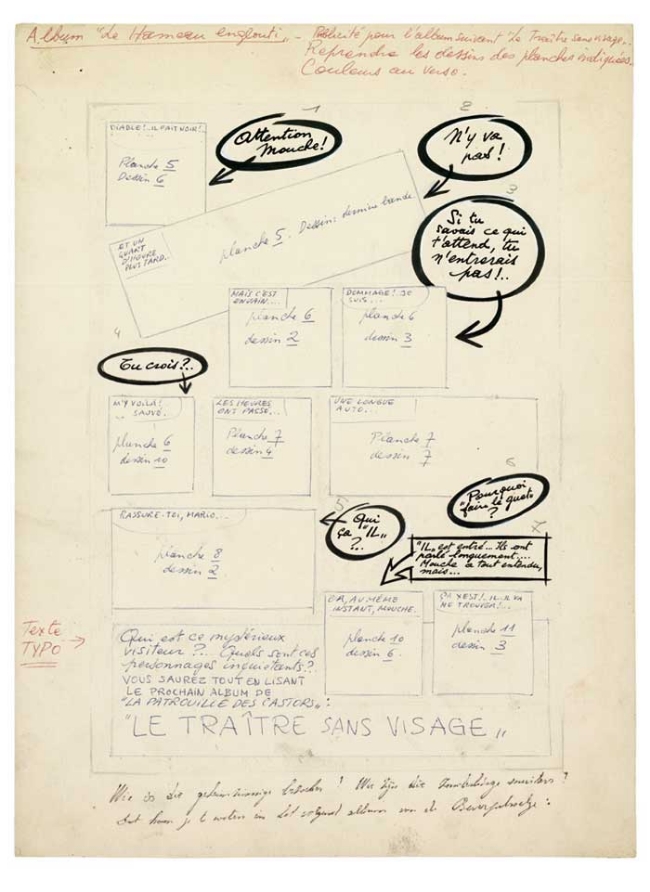 Album "Le Hameau englouti" - Publicité pour l'album suivant "Le Traître sans visage"..
Reprendre les dessins des planches indiquées.
Couleurs au verso.
1
2
DIABLE!..IL FAIT NOIR!..
Planche 5
Dessin 6
Attention
Mouche!
N'y va
pas!
3
Si tu
savais ce qui
t'attend, tu
n'entrerais
pas!..
ET UN
QUART
D'HEURE
PLUS TARD..
planche 5. Dessin: dernière bande
MAIS C'EST
EN VAIN...
planche 6
dessin 2
DOMMAGE! JE
SUIS...
planche 6
dessin 3
4
Tu crois?..
M'Y VOILÀ!
SAUVÉ.
planche 6
dessin 10
LES HEURES
ONT PASSÉ...
Planche 7
dessin 4
UNE LONGUE
AUTO...
Planche 7
dessin 7
5
6
Qui
ça "IL"
?..
Pourquoi
"faire le guet"
?
7
RASSURE-TOI, MARIO...
planche 8
dessin 2
"IL" est entré... Ils ont
parlé longuement....
Mouche a tout entendu,
mais...
OR, AU MÊME
INSTANT, MOUCHE..
planche 10
dessin 6
ÇA Y EST!.. IL.. IL VA
ME TROUVER!..
planche 11
dessin 3
Texte
TYPO →
Qui est ce mystérieux
visiteur?.. Quels sont ces
personnages inquiétants?
VOUS SAUREZ TOUT EN LISANT
LE PROCHAIN ALBUM DE
"LA PATROUILLE DES CASTORS":
"LE TRAÎTRE SANS VISAGE"
Wie is die geheimzinnige bezoeker? Wie zijn die
Dat kom je te weten in het volgend album van de Beverpatroelje: